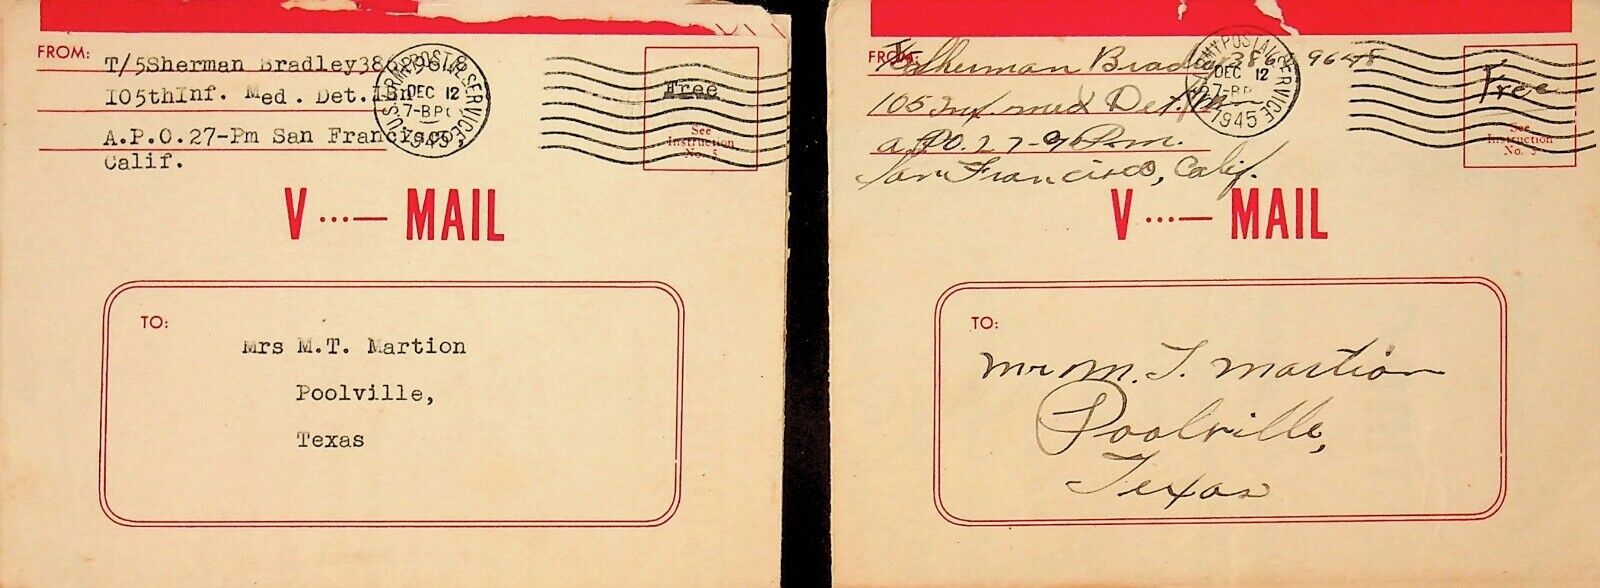 FROM: T/5Sherman Bradley386
105thInf. Med. Det.1Bn
A.P.O.27-Pm San Francisco,
Calif.
U.S. ARMY POSTAL SERVICE
DEC 12
1945
Free
See
Instruction
No. 5
V ...— MAIL
TO:
Mrs M.T. Martion
Poolville,
Texas
FROM: Sherman Bradley 386 9648
105 Inf med Det.
San Francisco, Calif.
ARMY POSTAL SERVICE
DEC 12
1945
Free
See
Instruction
No. 5
V ...— MAIL
TO:
Mr M. T. Martion
Poolville,
Texas